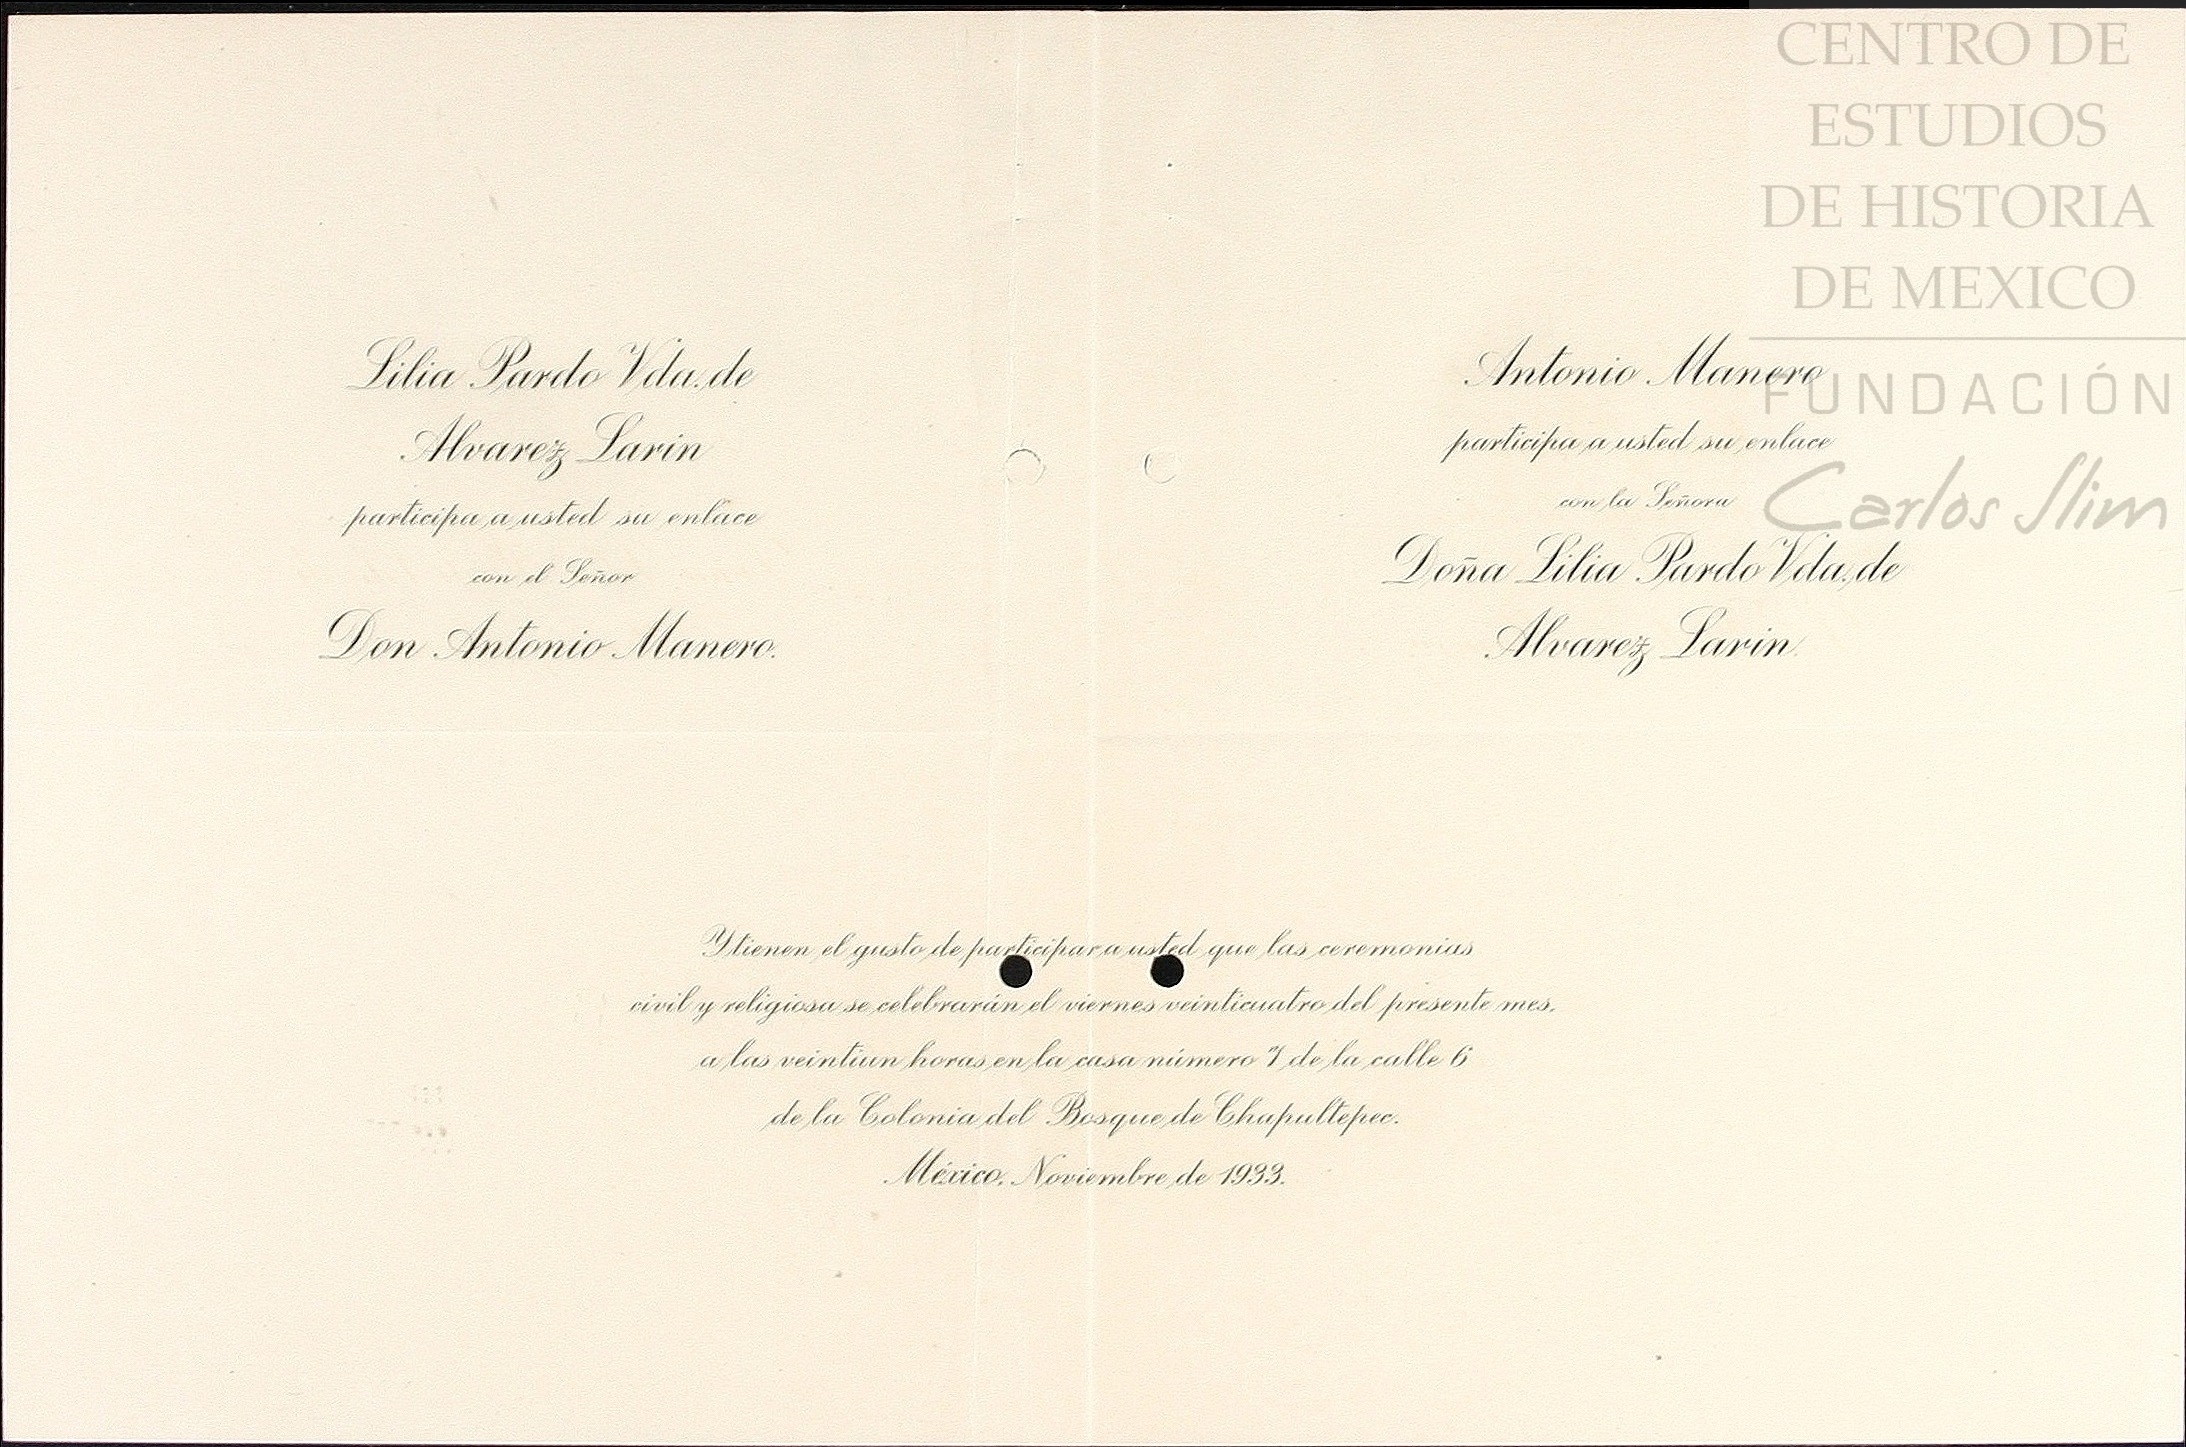 Lilia Pardo Vda. de
Alvarez Larin
participa a usted su enlace
con el Señor
Don Antonio Manero.
Antonio Manero
participa a usted su enlace
con la Señora
Doña Lilia Pardo Vda. de
Alvarez Larin.
Y tienen el gusto de participar a usted que las ceremonias
civil y religiosa se celebrarán el viernes veinticuatro del presente mes.
a las veintiun horas en la casa número 7 de la calle 6
de la Colonia del Bosque de Chapultepec.
México. Noviembre de 1933.
CENTRO DE
ESTUDIOS
DE HISTORIA
DE MEXICO
FUNDACIÓN
Carlos Slim